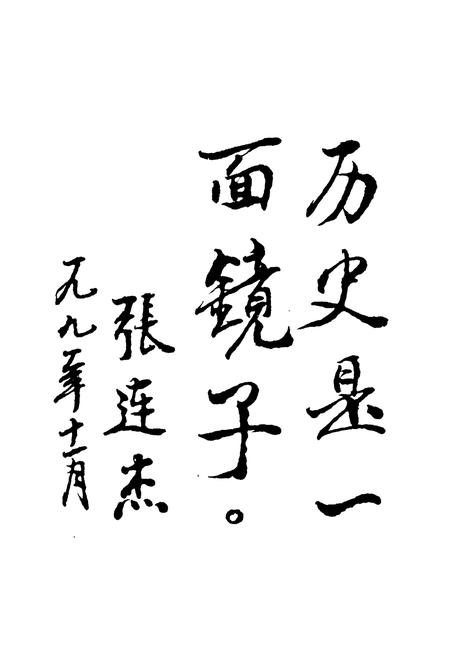 历史是一
面镜子。
張连杰
一九九一年十一月